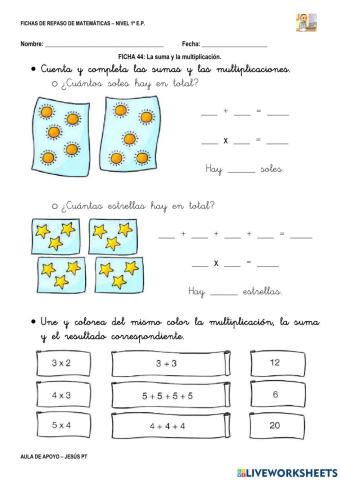 FICHAS DE REPASO DE MATEMÁTICAS – NIVEL 1º E.P.
Nombre: ____________ Fecha: ____________
FICHA 44: La suma y la multiplicación.
• Cuenta y completa las sumas y las multiplicaciones.
o ¿Cuántos soles hay en total?
___ + ___ = ___
___ x ___ = ___
Hay ___ soles.
o ¿Cuántas estrellas hay en total?
___ + ___ + ___ + ___ = ___
___ x ___ = ___
Hay ___ estrellas.
• Une y colorea del mismo color la multiplicación, la suma
y el resultado correspondiente.
3 x 2 3 + 3 12
4 x 3 5 + 5 + 5 + 5 6
5 x 4 4 + 4 + 4 20
AULA DE APOYO – JESÚS PT
LIVEWORKSHEETS